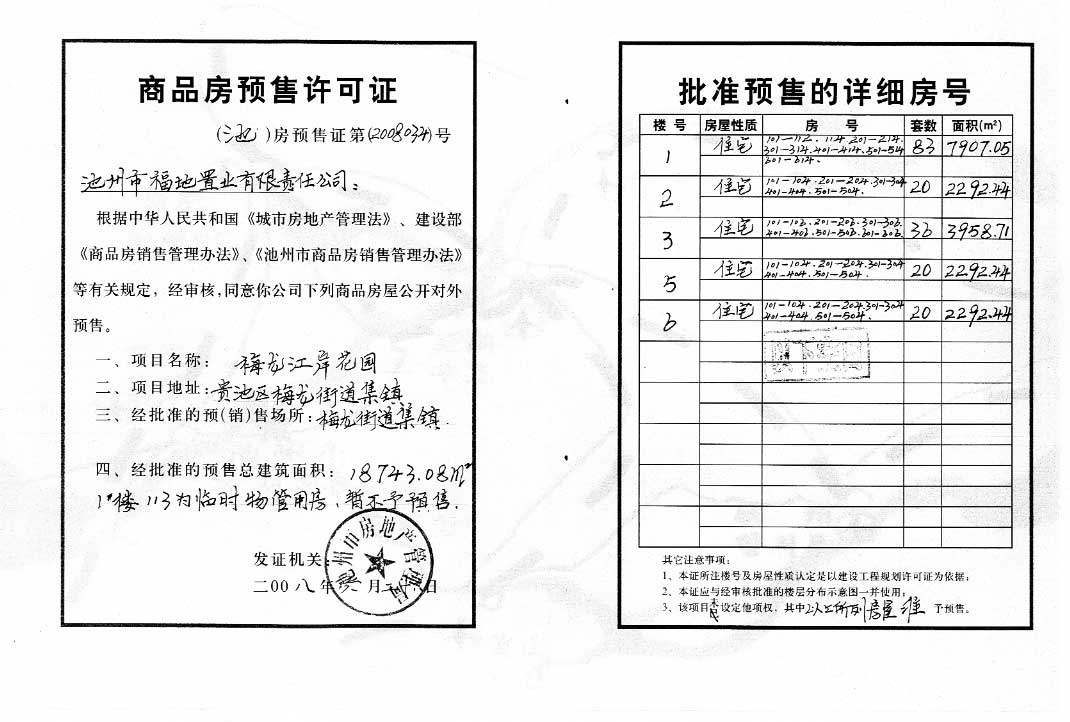 商品房预售许可证
(池)房预售证第(2008034)号
池州市福地置业有限责任公司：
根据中华人民共和国《城市房地产管理法》、建设部
《商品房销售管理办法》、《池州市商品房销售管理办法》
等有关规定，经审核,同意你公司下列商品房屋公开对外
预售。
一、项目名称： 梅龙江岸花园
二、项目地址:贵池区梅龙街道集镇
三、经批准的预(销)售场所:梅龙街道集镇
四、经批准的预售总建筑面积：18743.08m²
1#楼113为临时物管用房，暂不予预售.
发证机关
池州市房地产管理局
二00八年 月 日
批准预售的详细房号
楼号 房屋性质 房号 套数 面积(m²)
1 住宅 101-112.114.201-214. 83 7907.05
301-314.401-414.501-514
601-614.
2 住宅 101-104.201-204.301-304 20 2292.44
401-404.501-504.
3 住宅 101-106.201-206.301-306. 36 3958.71
401-406.501-506.601-606.
5 住宅 101-104.201-204.301-304 20 2292.44
401-404.501-504.
6 住宅 101-104.201-204.301-304 20 2292.44
401-404.501-504.
其它注意事项：
1、本证所注楼号及房屋性质认定是以建设工程规划许可证为依据；
2、本证应与经审核批准的楼层分布示意图一并使用；
3、该项目 设定他项权，其中以上所列房屋准 予预售。